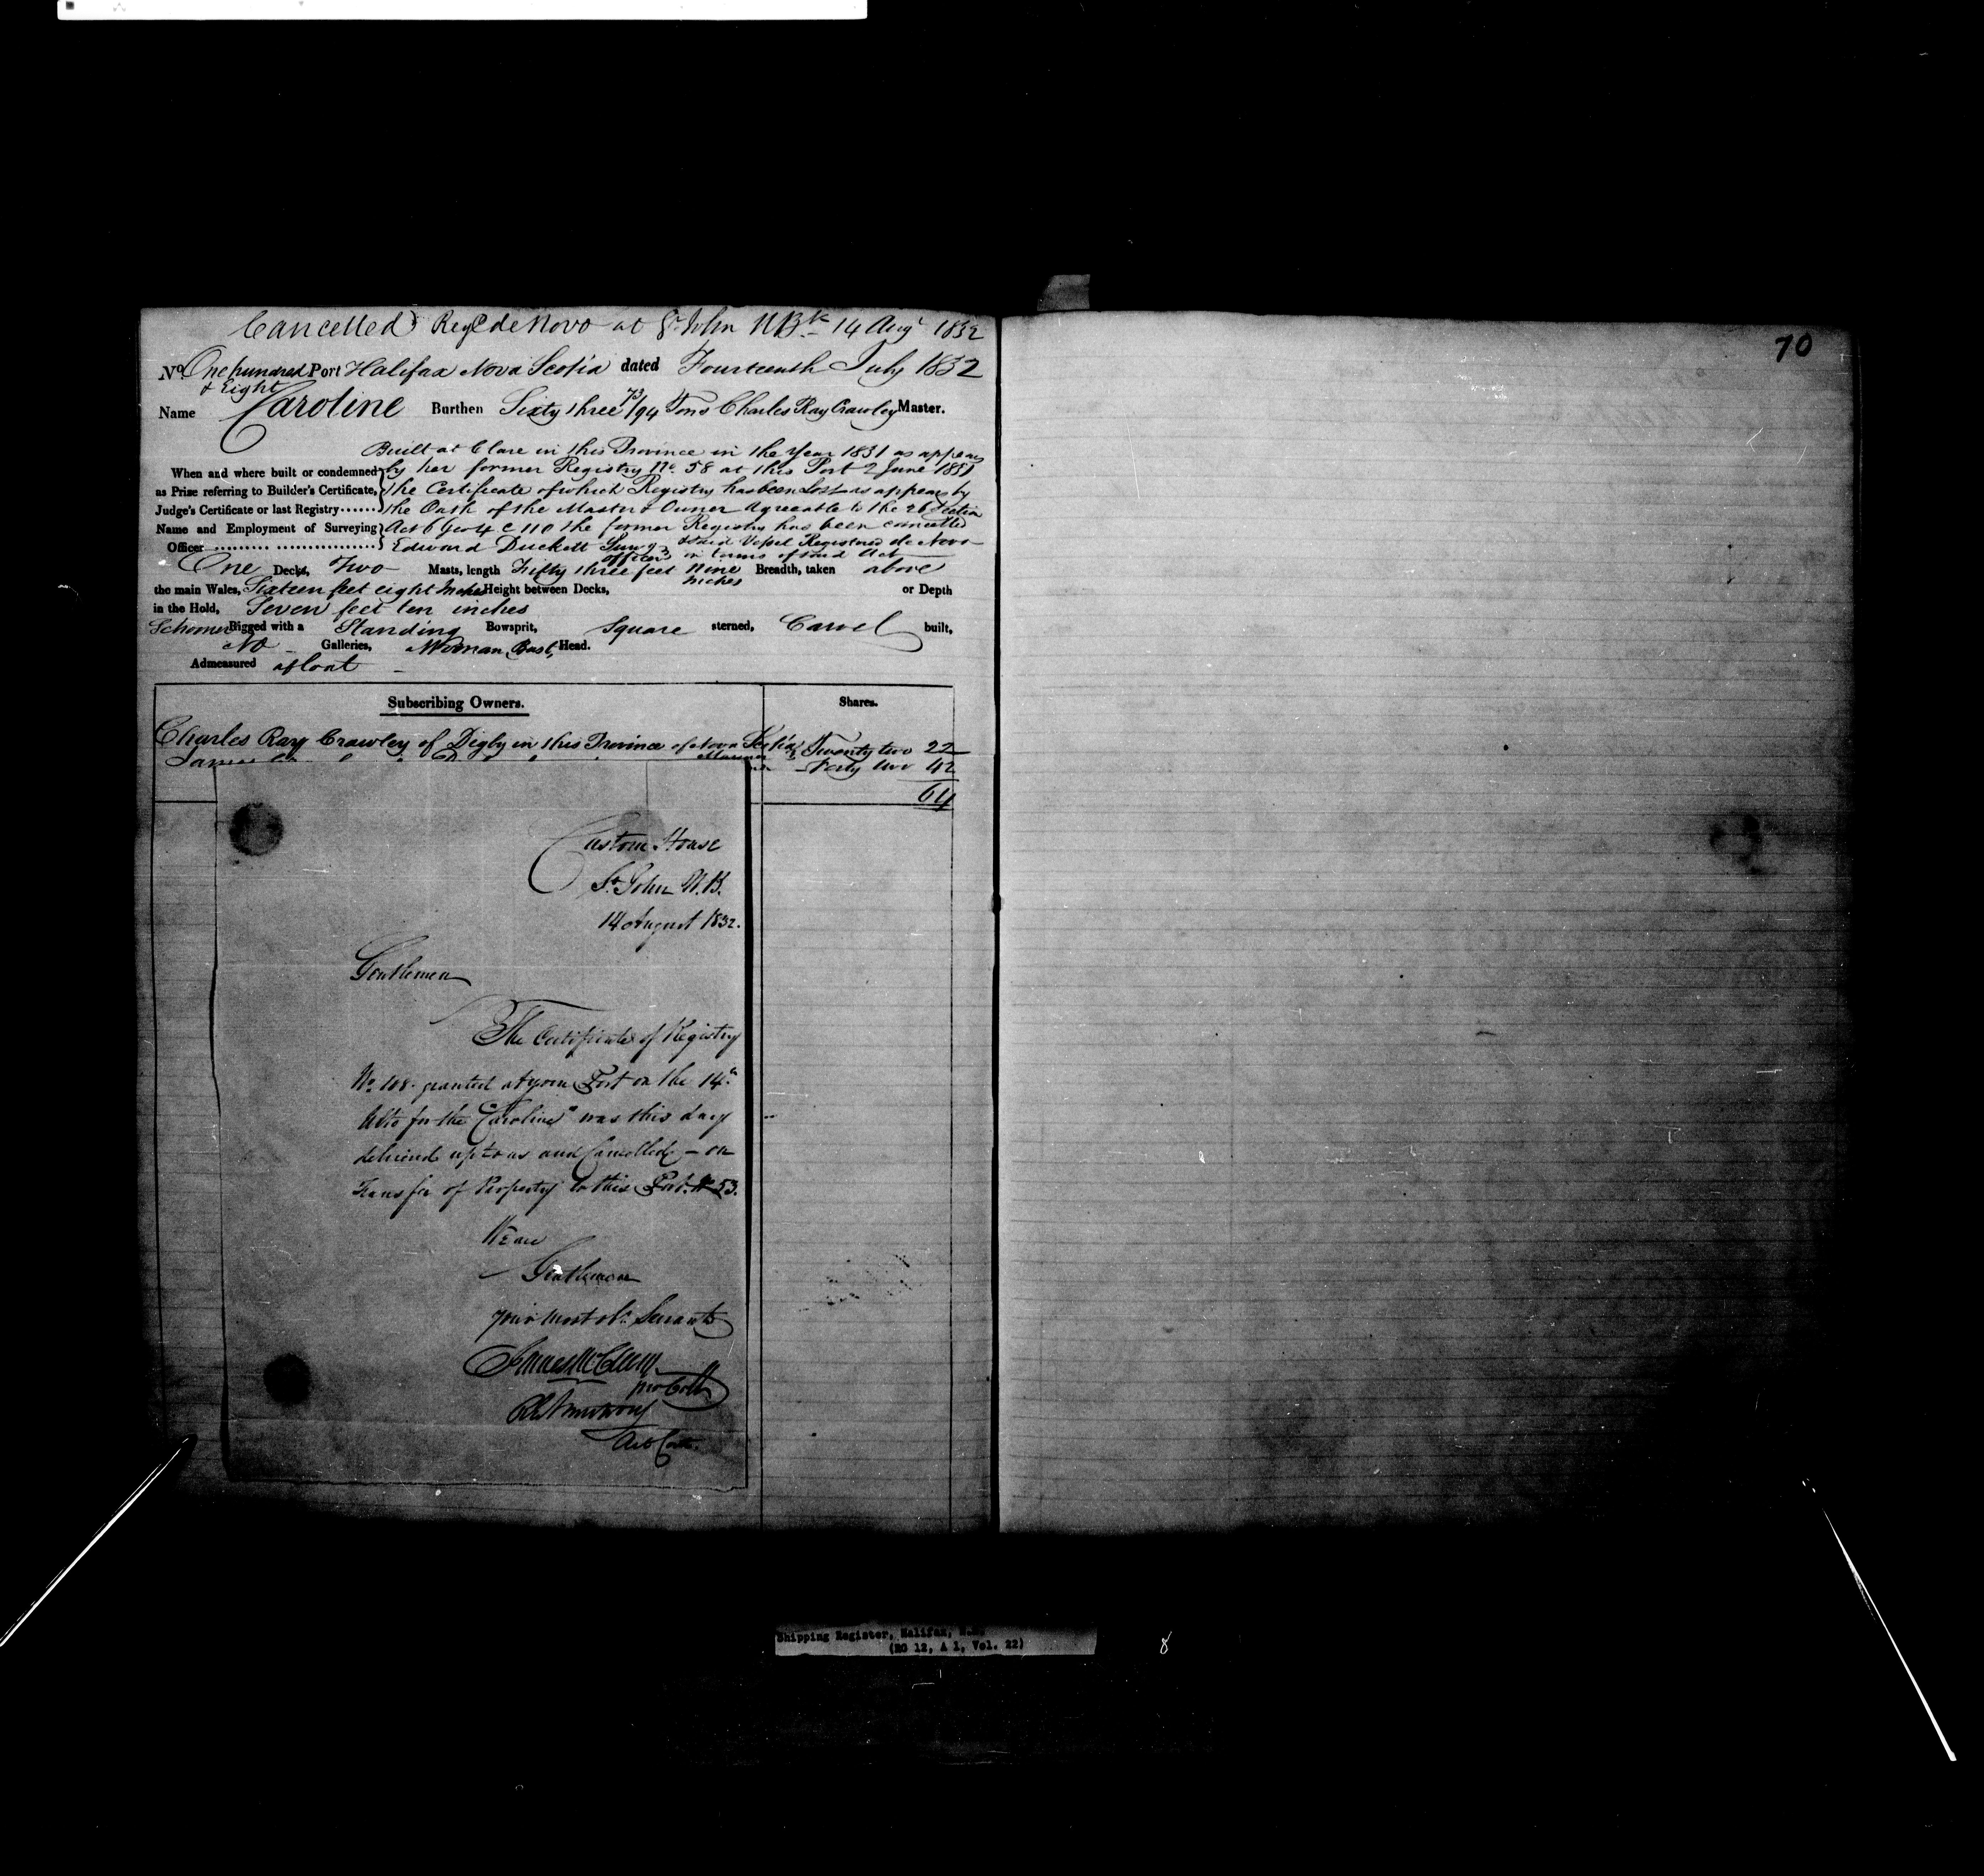 Cancelled Regd de Novo at St John NBk 14 Augt 1832
No. One hundred & Eight Port Halifax Nova Scotia dated Fourteenth July 1832
Name Caroline Burthen Sixty three 73/94 Tons Charles Ray Crawley Master.
Built at Clare in this Province in the Year 1831 as appears
When and where built or condemned by her former Registry No. 58 at this Port 2 June 1831
as Prize referring to Builder's Certificate, The Certificate of which Registry has been Lost as appears by
Judge's Certificate or last Registry the Oath of the Master & Owner Agreeable to the 26 Section
Name and Employment of Surveying Act 6 Geo 4 C 110 the former Registry has been cancelled
Officer Edward Duckett Survg officer & said Vessel Registered de Novo in terms of said Act
One Decks, Two Masts, length Fifty three feet Nine Inches Breadth, taken above
the main Wales, Sixteen feet eight Inches Height between Decks, or Depth
in the Hold, Seven feet ten inches
Schooner Rigged with a Standing Bowsprit, Square sterned, Carvel built,
No Galleries, Woman Bust Head.
Admeasured afloat
Subscribing Owners. Shares.
Charles Ray Crawley of Digby in this Province of Nova Scotia Mariner Twenty two 22
Forty two 42
64
Custom House
St. John N.B.
14 August 1832.
Gentlemen
The Certificate of Registry
No. 108 granted at your Port on the 14th
Ulto for the "Caroline" was this day
delivered up to us and Cancelled - on
Transfer of Property to this Port. No 53.
We are
Gentlemen
Your Most obt. Servants
70
Shipping Register, Halifax, N.S.
(RG 12, A 1, Vol. 22)
8